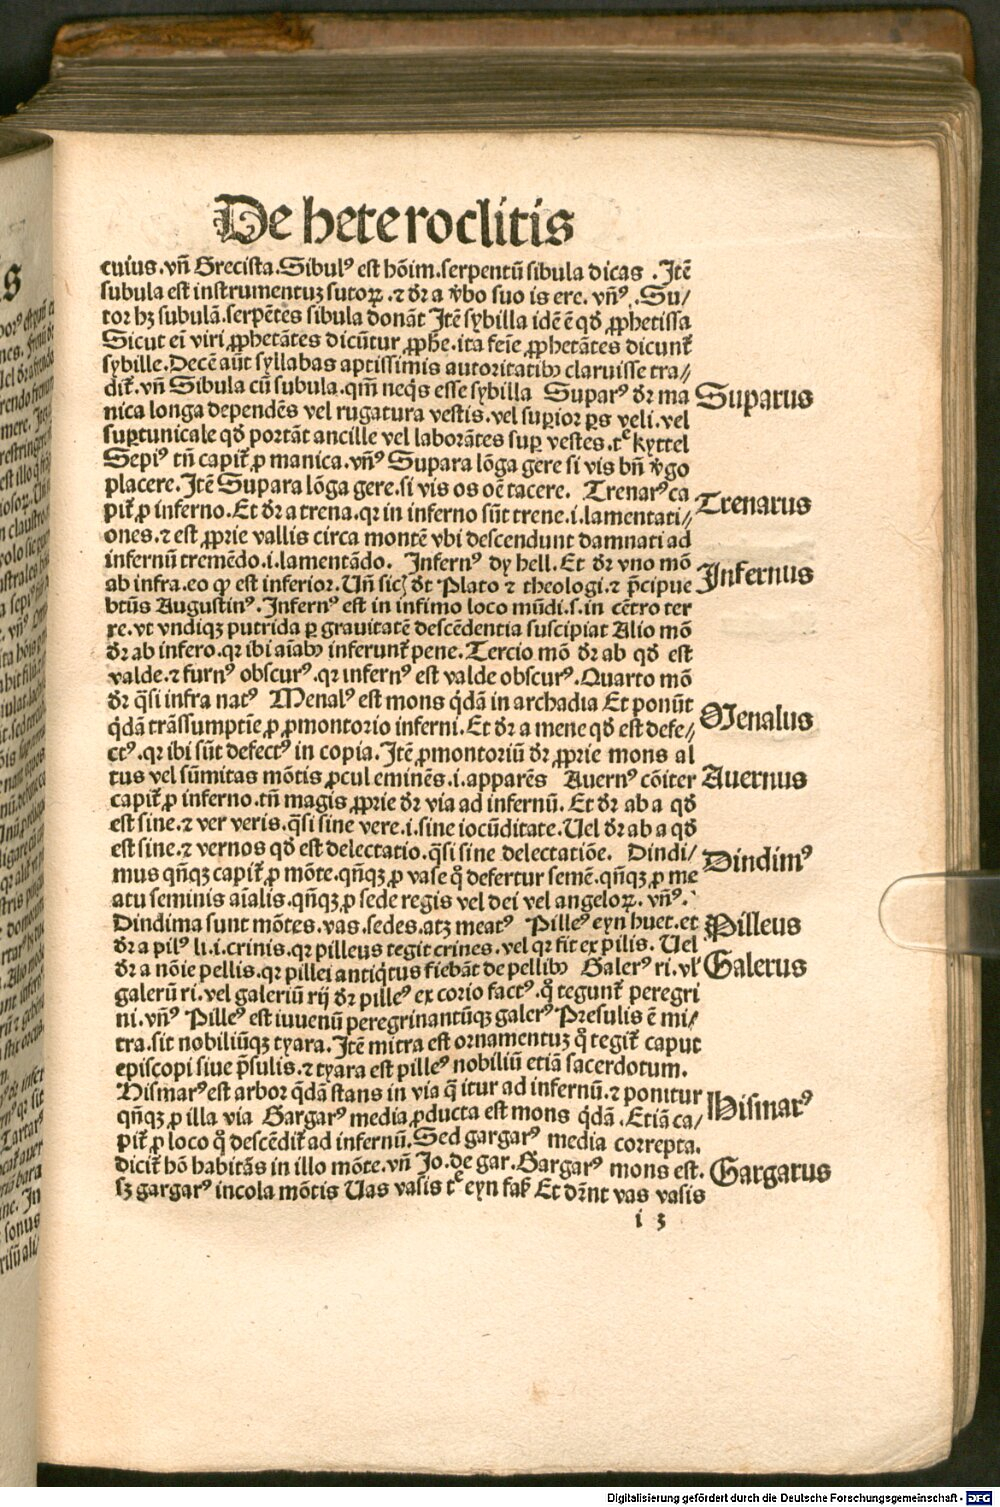 De heteroclitis
cuius.vñ Grecista.Sibulꝰ est hōim.serpentū sibula dicas .Itē
subula est instrumentuꝫ sutoꝝ.⁊ dr̄ a v̄bo suo is ere. vñꝰ.Su/
tor hꝫ subulā.serpētes sibula donāt Itē sybilla idē ē qd̄ ꝓphetissa
Sicut ei viri ꝓphetātes dicūtur ꝓphē.ita feīe ꝓphetātes dicunt᷑
sybille.Decē aūt syllabas aptissimis autoritatibꝰ claruisse tra/
dit᷑.vñ Sibula cū subula.qm̄ neqs̄ esse sybilla Suparꝰ dr̄ ma
Suparus
nica longa dependēs vel rugatura vestis.vel suꝑior ꝑs veli.vel
suꝑtunicale qd̄ portāt ancille vel laborātes suꝑ vestes.tͤ kyttel
Sepiꝰ tñ capit᷑ ꝓ manica.vñꝰ Supara lōga gere si vis bñ v̄go
placere.Itē Supara lōga gere.si vis os oē tacere. Trenarꝰ ca
Trenarus
pit᷑ ꝓ inferno.Et dr̄ a trena.qꝛ in inferno sūt trene.i.lamentati/
ones.⁊ est ꝓprie vallis circa montē vbi descendunt damnati ad
infernū tremēdo.i.lamentādo. Infernꝰ dy hell.Et dr̄ vno mō
Infernus
ab infra.eo ꝙ est inferior.Uñ sic dt̄ Plato ⁊ theologi.⁊ p̄cipue
btūs Augustinꝰ.Infernꝰ est in infimo loco mūdi.s.in cētro ter
re.vt vndiqꝫ putrida ꝑ grauitatē descēdentia suscipiat Alio mō
dr̄ ab infero.qꝛ ibi aīabꝰ inferunt᷑ pene.Tercio mō dr̄ ab qd̄ est
valde.⁊ furnꝰ obscurꝰ.qꝛ infernꝰ est valde obscurꝰ.Quarto mō
dr̄ q̄si infra natꝰ Menalꝰ est mons q̇dā in archadia Et ponūt
Menalus
q̇dā trāssumptīe ꝓ ꝓmontorio inferni.Et dr̄ a mene qd̄ est defe/
ctꝰ.qꝛ ibi sūt defectꝰ in copia.Itē ꝓmontoriū dr̄ ꝓprie mons al
tus vel sūmitas mōtis ꝓcul eminēs.i.apparēs Auernꝰ cōiter
Auernus
capit᷑ ꝓ inferno.tñ magis ꝓprie dr̄ via ad infernū.Et dr̄ ab a qd̄
est sine.⁊ ver veris.q̄si sine vere.i.sine iocūditate.Uel dr̄ ab a qd̄
est sine.⁊ vernos qd̄ est delectatio.q̄si sine delectatiōe. Dindi/
Dindimꝰ
mus qñqꝫ capit᷑ ꝓ mōte.qñqꝫ ꝓ vase q̊ defertur semē.qñqꝫ ꝓ me
atu seminis aīalis.qñqꝫ ꝓ sede regis vel dei vel angeloꝝ.vñꝰ.
Dindima sunt mōtes.vas.sedes.atꝫ meatꝰ Pilleꝰ eyn huet.et
Pilleus
dr̄ a pilꝰ li.i.crinis.qꝛ pilleus tegit crines.vel qꝛ fit ex pilis. Uel
dr̄ a nōie pellis.qꝛ pillei antiq̇tus fiebāt de pellibꝰ Galerꝰ ri.vl'
Galerus
galerū ri.vel galeriū rij dr̄ pilleꝰ ex corio factꝰ.q̊ tegunt᷑ peregri
ni.vñꝰ Pilleꝰ est iuuenū peregrinantūqꝫ galerꝰ Presulis ē mi/
tra.sit nobiliūqꝫ tyara.Itē mitra est ornamentuꝫ q̊ tegit᷑ caput
episcopi siue p̄sulis.⁊ tyara est pilleꝰ nobiliū etiā sacerdotum.
Hismarꝰ est arbor q̄dā stans in via q̄ itur ad infernū.⁊ ponitur
Hismarꝰ
qñqꝫ ꝓ illa via Gargarꝰ media ꝓducta est mons q̇dā.Etiā ca/
pit᷑ ꝓ loco q̊ descēdit᷑ ad infernū.Sed gargarꝰ media correpta.
dicit᷑ hō habitās in illo mōte.vñ Jo.de gar.Gargarꝰ mons est.
Gargarus
sꝫ gargarꝰ incola mōtis Uas vasis tͤ eyn faß Et dr̄nt vas vasis
i 3
Digitalisierung gefördert durch die Deutsche Forschungsgemeinschaft - DFG